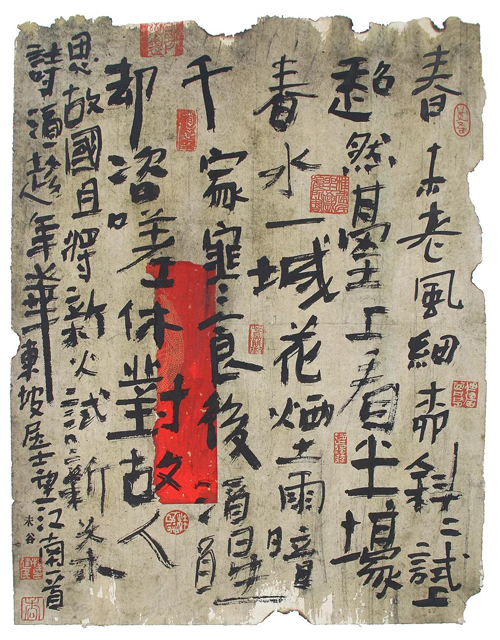 春未老風細柳斜々試上
超然臺上看半壕
春水一城花煙雨暗
千家寒食後酒醒
却咨嗟休對故人
思故國且將新火試新茶
詩酒趁年華東坡居士望江南首